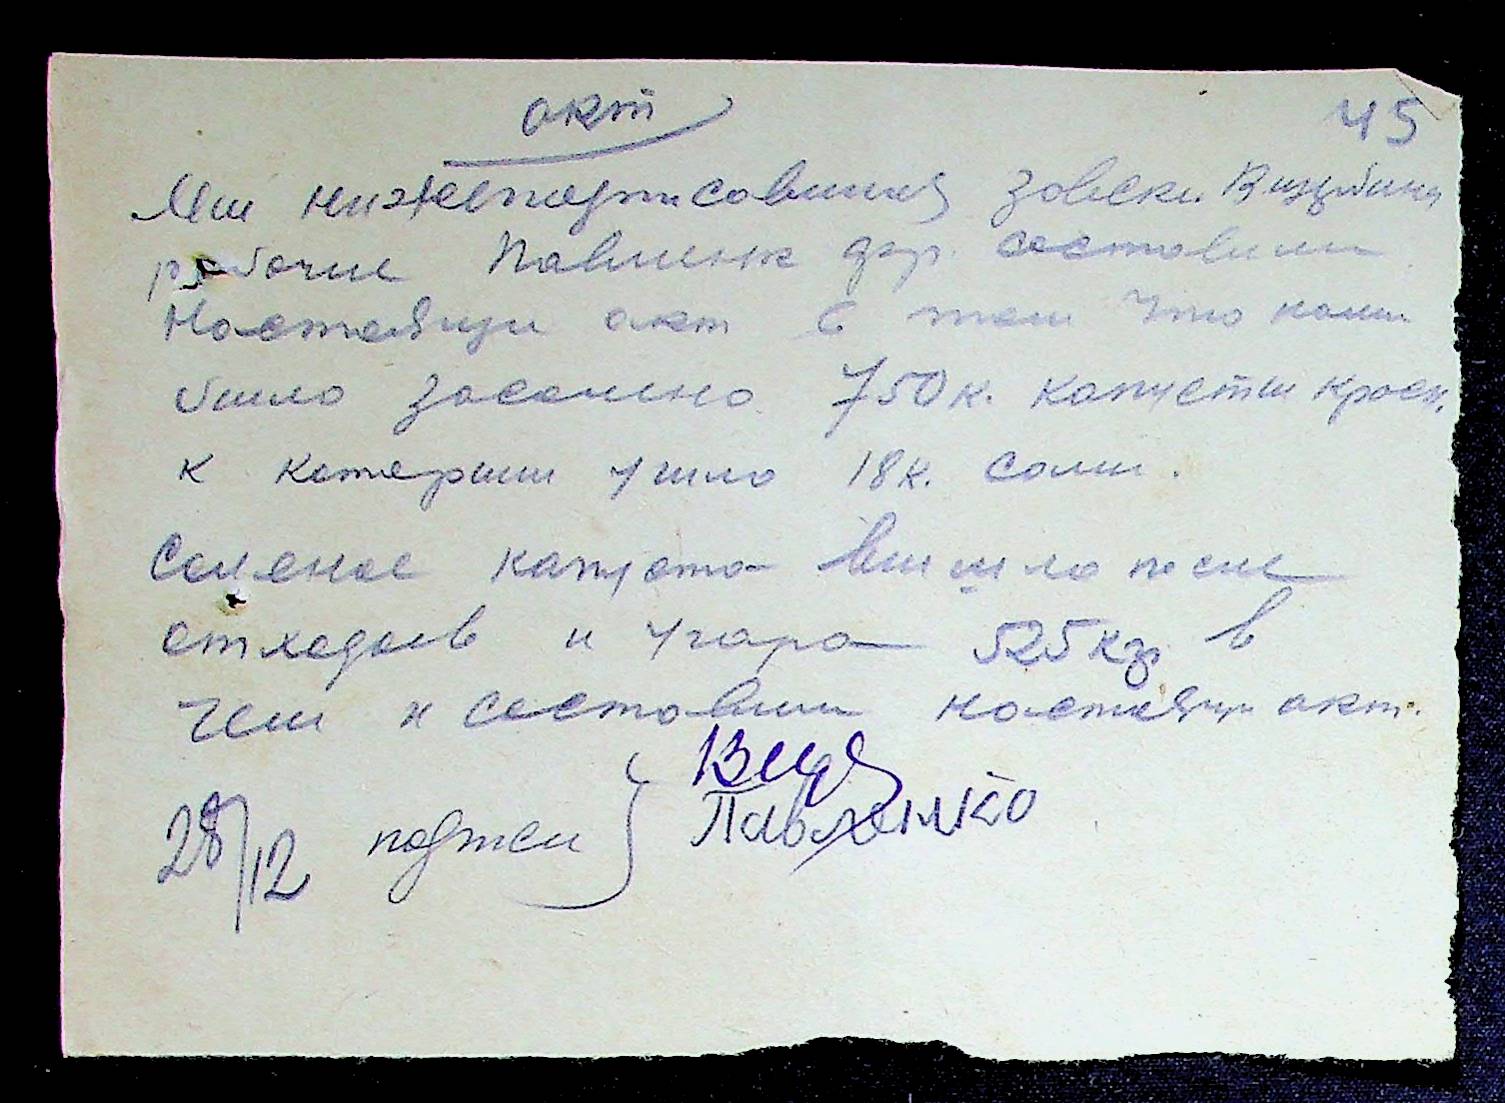 акт
45
Мы нижеподписавшиеся
рабочие др. составили
Настоящий акт в том что нами
было засолено 750 к. капусты красн.
к которыи ушло 18 к. соли.
Соленое капуста вышло после
отходов и угара 525 кг в
чем и составили настоящи акт.
28/12 подписи } Павленко